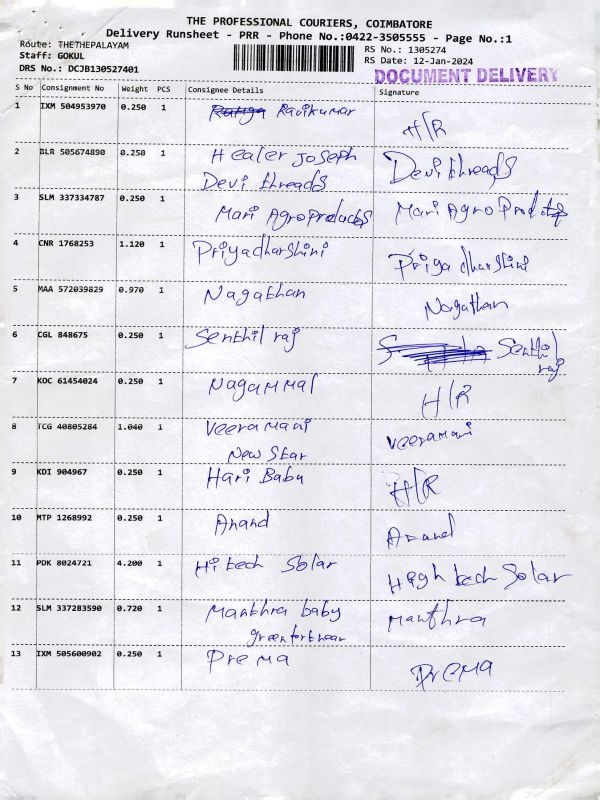 THE PROFESSIONAL COURIERS, COIMBATORE
Delivery Runsheet - PRR - Phone No.:0422-3505555 - Page No.:1
Route: THETHEPALAYAM
RS No.: 1305274
Staff: GOKUL
RS Date: 12-Jan-2024
DRS No.: DCJB130527401
DOCUMENT DELIVERY
S No Consignment No Weight PCS Consignee Details Signature
1 IXM 504953970 0.250 1 Ravikumar H/R
2 BLR 505674890 0.250 1 Healer Joseph Devi threads
Devi threads
3 SLM 337334787 0.250 1 Mari Agro Products Mari Agro Products
4 CNR 1768253 1.120 1 Priyadharshini Priya dharshini
5 MAA 572039829 0.970 1 Nagathan Nagathan
6 CGL 848675 0.250 1 Senthil raj Senthil
raj
7 KOC 61454024 0.250 1 Nagammal H/R
8 TCG 40805284 1.040 1 Veeramani Veeramani
New Star
9 KDI 904967 0.250 1 Hari Babu H/R
10 MTP 1268992 0.250 1 Anand Anand
11 PDK 8024721 4.200 1 Hi tech Solar High tech Solar
12 SLM 337283590 0.720 1 Manthra baby Manthra
13 IXM 505600902 0.250 1 Prema Prema